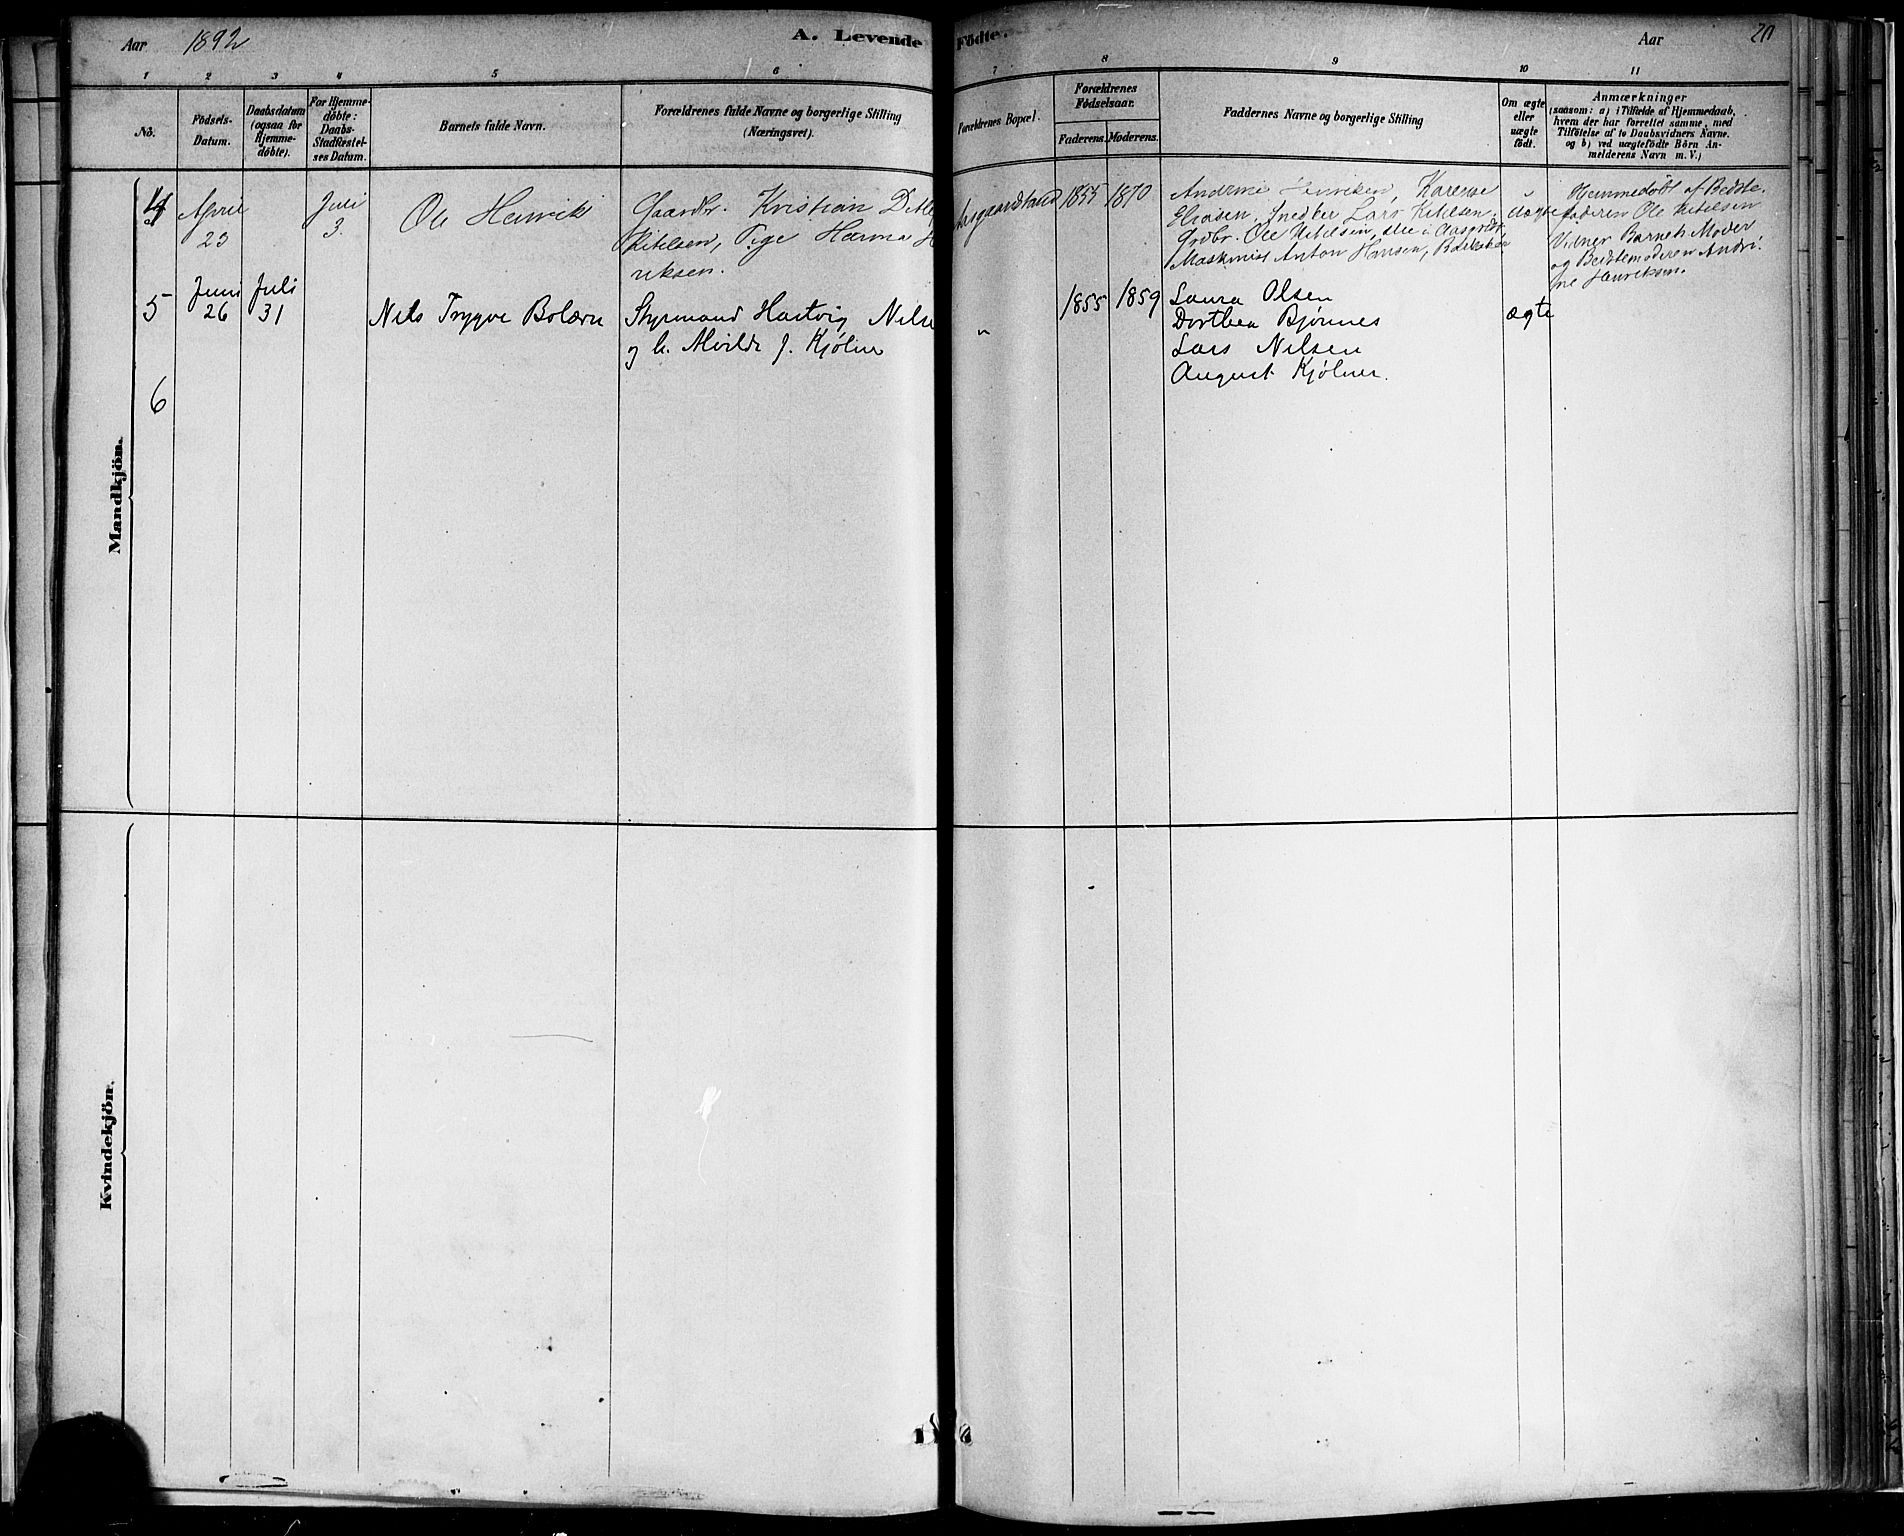 Aar 1892 A. Levende Födte. Aar 20
1 2 3 4 5 6 7 8 9 10 11
No.
Födsels-
Datum.
Daabsdatum
(ogsaa for
Hjemme-
döbte).
For Hjemme-
döbte:
Daabs-
Stadfæstel-
ses Datum.
Barnets fulde Navn.
Forældrenes fulde Navne og borgerlige Stilling
(Næringsvei).
Forældrenes Bopæl.
Forældrenes
Födselsaar.
Faderens. Moderens.
Faddernes Navne og borgerlige Stilling
Om ægte
eller
uægte
födt.
Anmærkninger
(saasom: a) i Tilfælde af Hjemmedaab,
hvem der har forrettet samme, med
Tilföielse af to Daabsvidners Navne.
og b) ved uægtefödte Börn An-
melderens Navn m. V.)
Mandkjön.
4
April
23
Juli
3.
Ole Henrik
Gaardbr. Kristian
Kitelsen, Pige Harma H
riksen.
1855 1870
Andrine Henriksen Karense
Eliasen, Snedker Lars Kitilsen,
Grdbr. Ole Kitilsen,
Maskinist Anton Hansen,
uægte
Hjemmedøbt af Bedste-
faderen Ole Kitelsen
Vidner Barnets Moder
og Bedstemoderen Andri-
ne Henriksen.
5
Juni
26
Juli
31
Nils Trygve Bolærn
Styrmand Hartvig Nilse
og h. Alvilde J. Kjølner
"
1855 1859
Laura Olsen
Dorthea Bjønnes
Lars Nilsen
August Kjølner.
ægte
6
Kvindekjön.